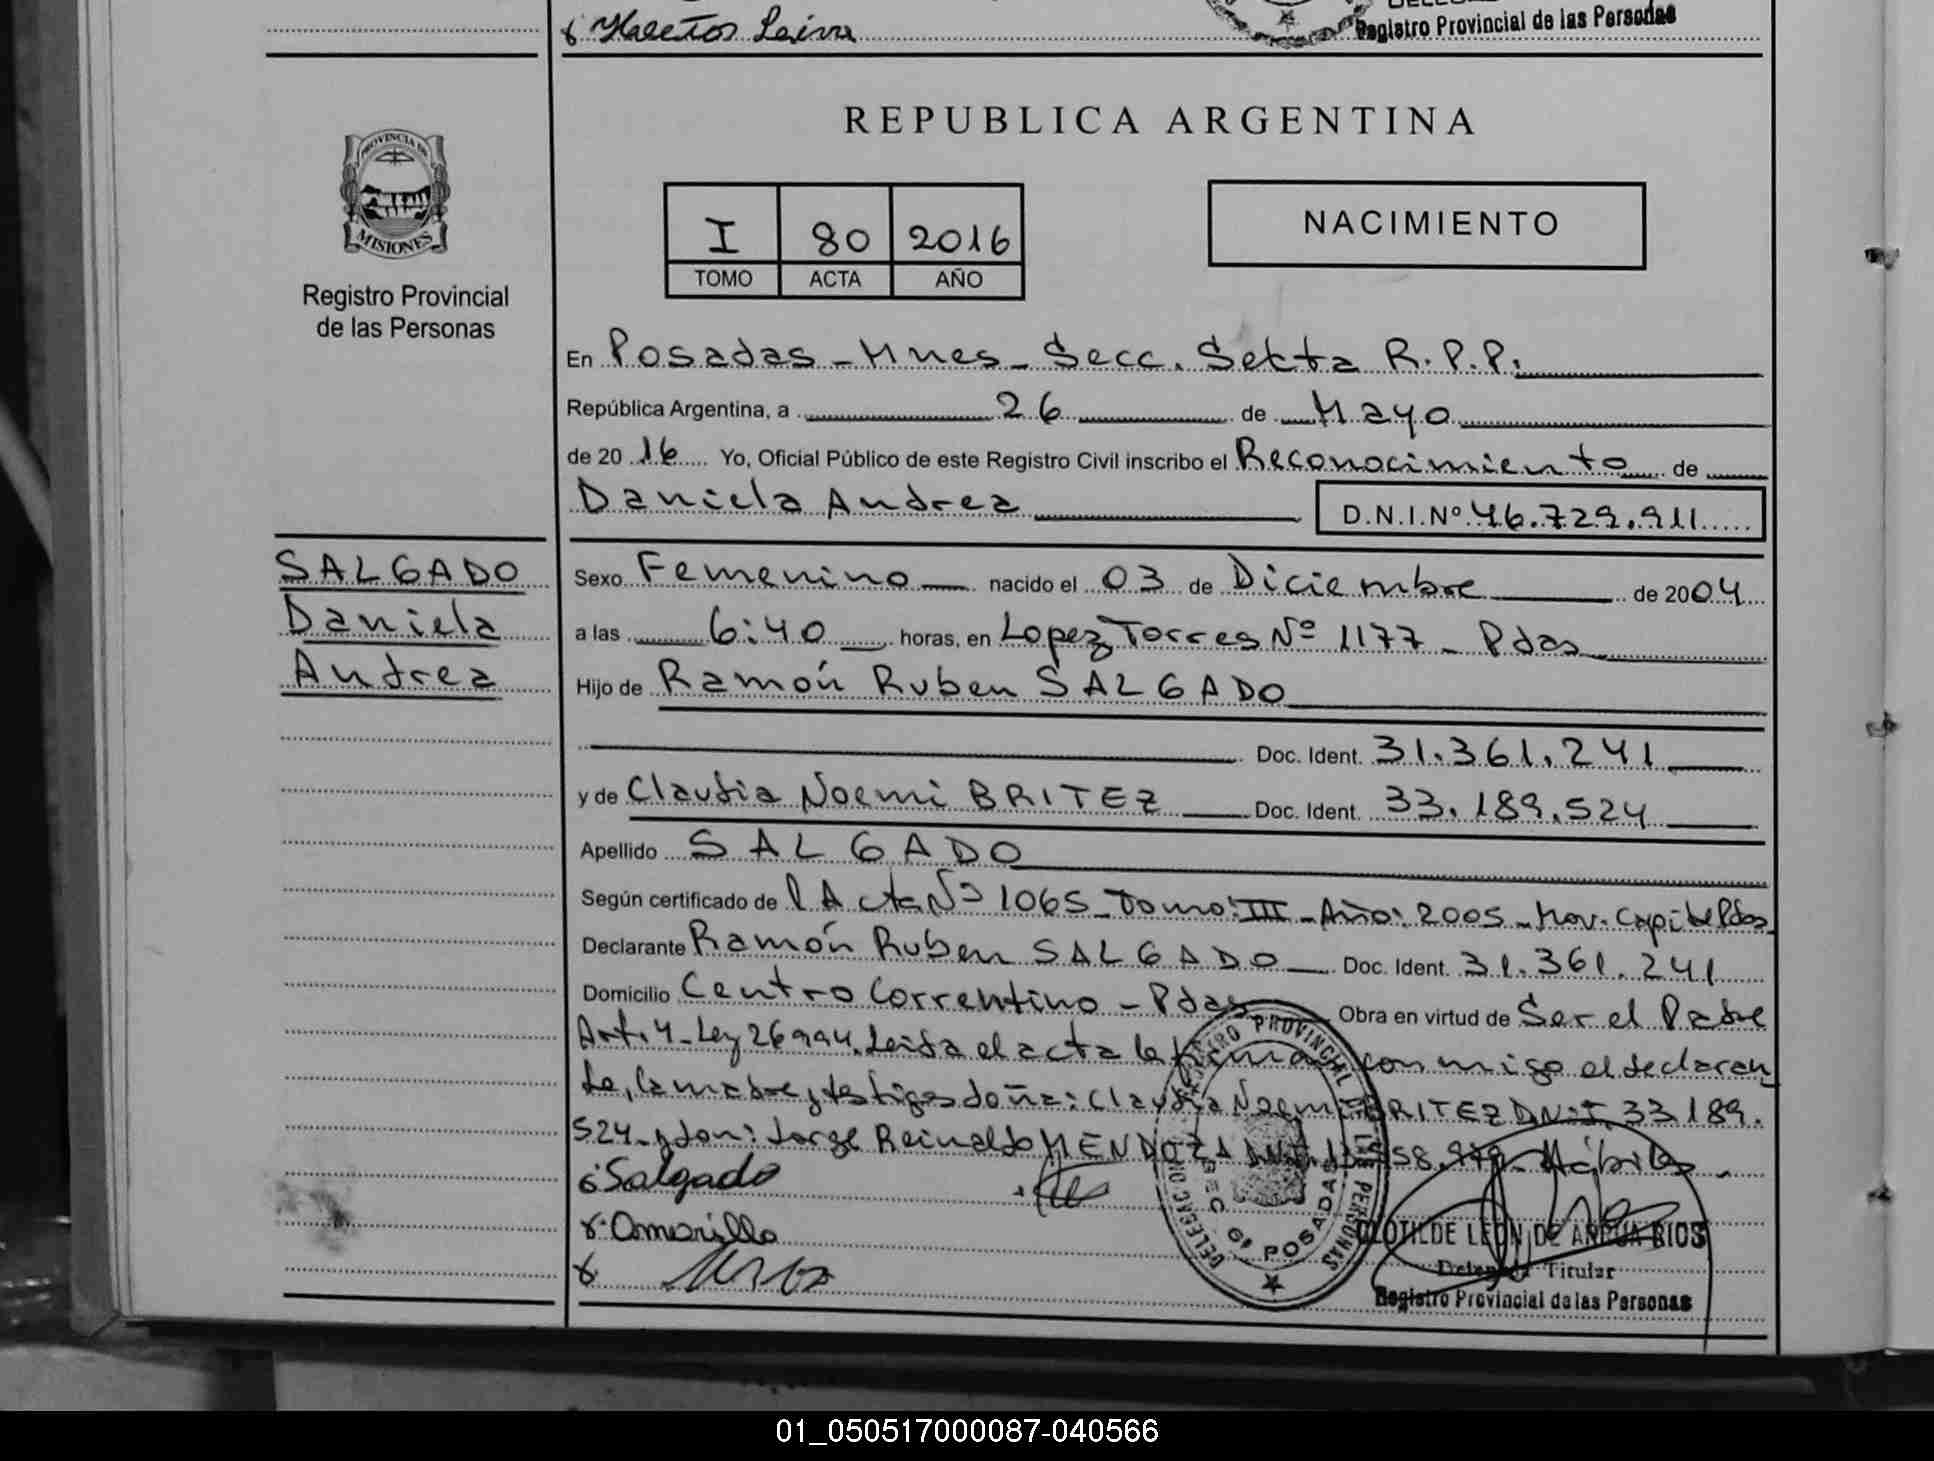 Registro Provincial de las Personas
REPUBLICA ARGENTINA
PROVINCIA DE
MISIONES
Registro Provincial
de las Personas
I 80 2016
TOMO ACTA AÑO
NACIMIENTO
En Posadas - Mnes - Secc. Sexta R.P.P.
República Argentina, a 26 de Mayo
de 2016 Yo, Oficial Público de este Registro Civil inscribo el Reconocimiento de
Daniela Andrea D.N.I.Nº 46.729.911
SALGADO
Daniela
Andrea
Sexo Femenino nacido el 03 de Diciembre de 2004
a las 6:40 horas, en Lopez Torres Nº 1177 - Pdas
Hijo de Ramón Ruben SALGADO
Doc. Ident. 31.361.241
y de Claudia Noemi BRITEZ Doc. Ident. 33.189.524
Apellido SALGADO
Según certificado de l Acta Nº 1065 - Tomo: III - Año: 2005 - Mov. Capital Pdas
Declarante Ramón Ruben SALGADO Doc. Ident. 31.361.241
Domicilio Centro Correntino - Pdas Obra en virtud de Ser el Padre
Art. 4 - Ley 26994. Leida el acta la firma conmigo el declaran
te, la madre y testigos doña: Claudia Noemi BRITEZ D.N.I. 33.189.
524 - y don: Jorge Reinaldo MENDOZA Hábiles
Salgado
Amarillo
REGISTRO PROVINCIAL DE LAS PERSONAS
DELEGACION
SEC 6ª POSADAS
CLOTILDE LEON DE RIOS
Delegada Titular
Registro Provincial de las Personas
01_050517000087-040566